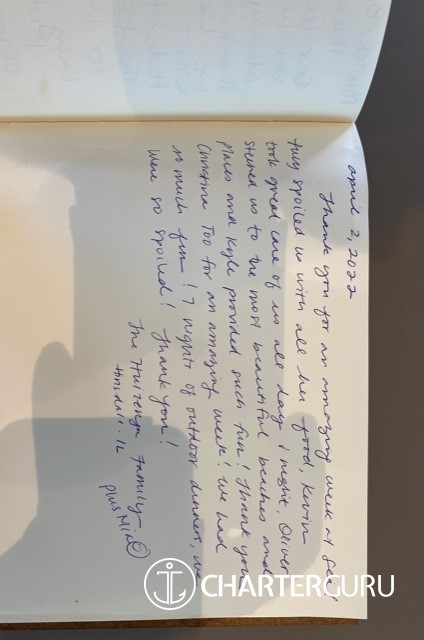 april 2, 2022
Thank you for an amazing week at sea!
truly spoiled us with all her food, Kevin
took great care of us all day & night. Oliver
steered us to the most beautiful beaches and
places and Kyle provided such fun! Thank you
Christina Too for an amazing week! we had
so much fun! 7 nights of outdoor dinners, we
were so spoiled! Thank you!
The Huizenga Family
Hinsdale, IL
plus Mia
CHARTERGURU